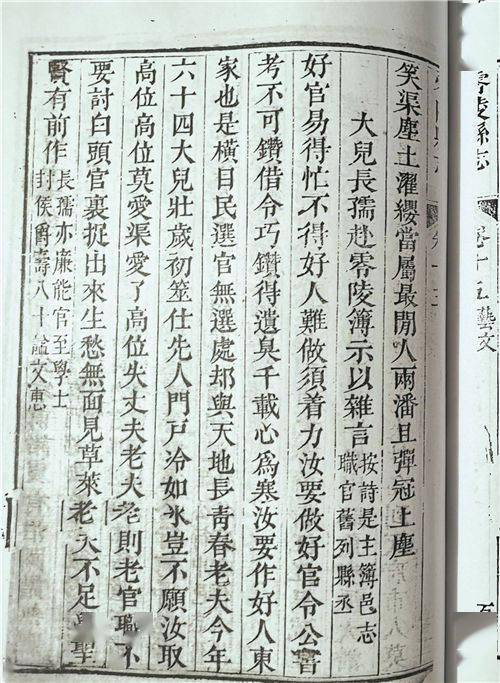 零陵縣志 卷十五藝文
笑渠塵土濯纓當屬最閒人兩潘且彈冠上塵
大兒長孺赴零陵簿示以雜言
按詩是主簿邑志
職官舊列縣丞
好官易得忙不得好人難做須着力汝要做好官令公書
考不可鑽借令巧鑽得遺臭千載心爲寒汝要作好人東
家也是橫目民選官無選處却與天地長青春老夫今年
六十四大兒壯歲初筮仕先人門戸冷如氷豈不願汝取
高位高位莫愛渠愛了高位失丈夫老夫老則老官職不
要討白頭官裏捉出來生愁無面見草萊老夫不足聖
賢有前作
長孺亦廉能官至學士
封侯爵壽八十諡文惠